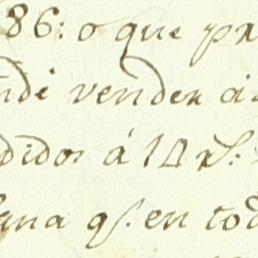 86: o que pr
nde vender
didos á 14 r.s:
ana q.e en tod